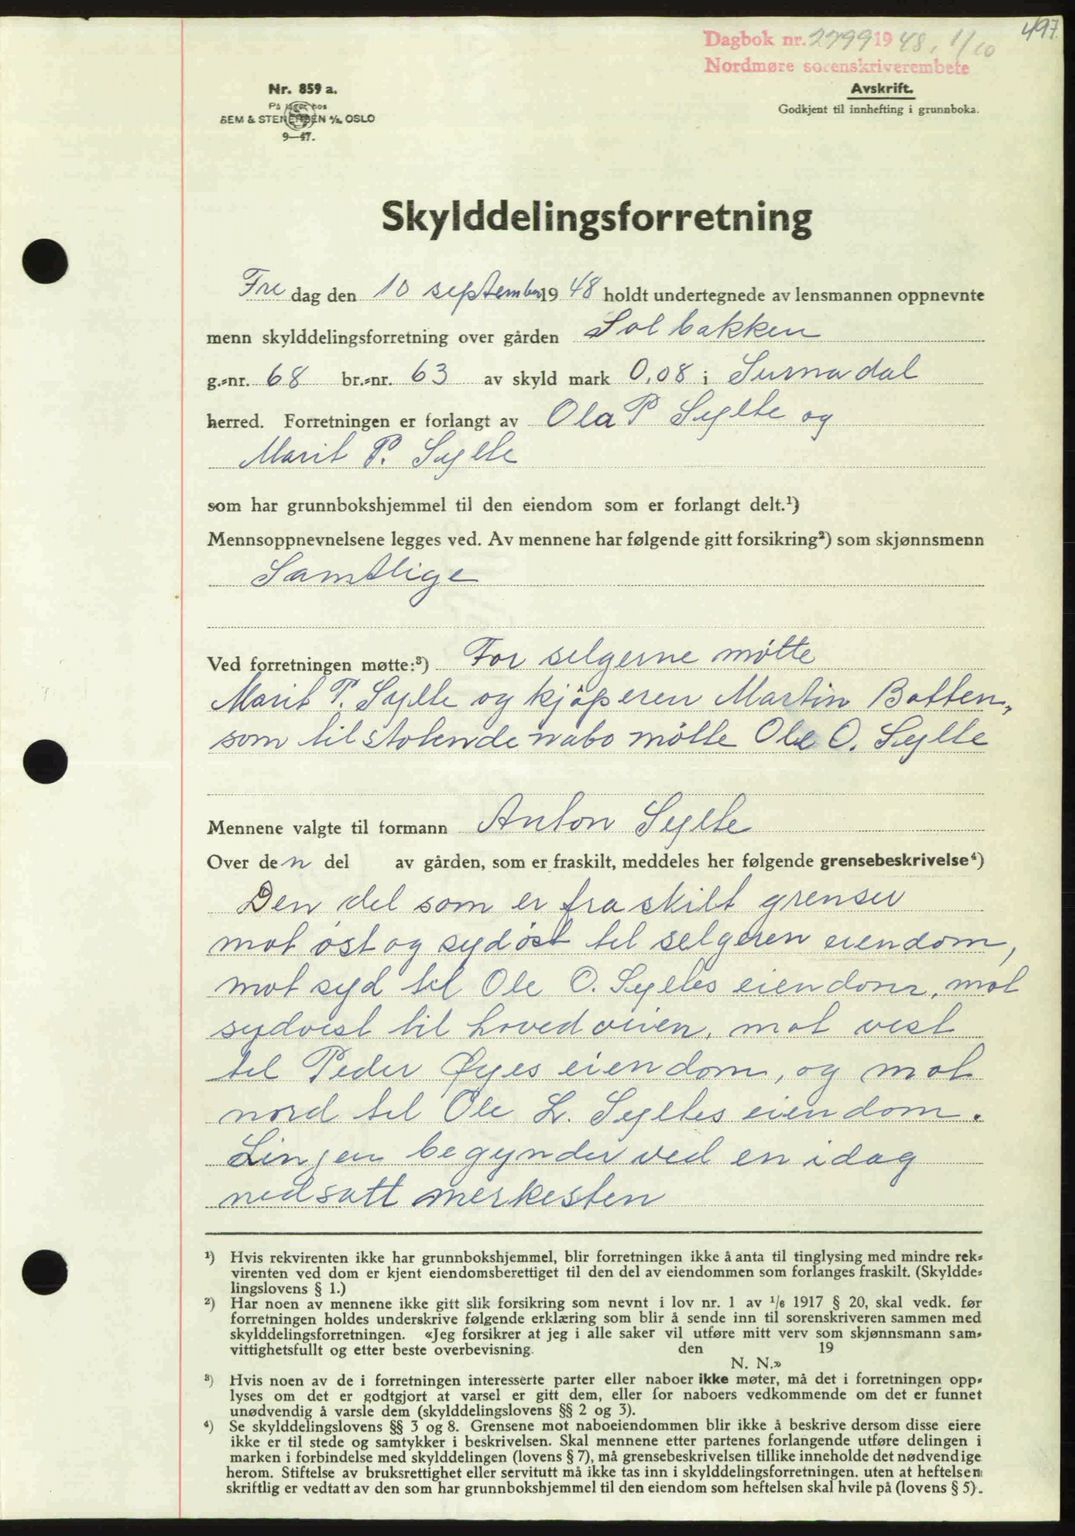 497
Dagbok nr. 2799 1948, 1/10
Nordmøre sorenskriverembete
Nr. 859 a.
Avskrift.
På lager hos
Godkjent til innhefting i grunnboka.
SEM & STENERSEN A/S, OSLO
9—47.
Skylddelingsforretning
Fre dag den 10 september 1948 holdt undertegnede av lensmannen oppnevnte
menn skylddelingsforretning over gården Solbakken
g.-nr. 68 br.-nr. 63 av skyld mark 0,08 i Surnadal
herred. Forretningen er forlangt av Ola P Sylte og
Marit P. Sylte
som har grunnbokshjemmel til den eiendom som er forlangt delt.¹)
Mennsoppnevnelsene legges ved. Av mennene har følgende gitt forsikring²) som skjønnsmenn
Samtlige
Ved forretningen møtte:³) For selgerne møtte
Marit P. Sylte og kjøperen Martin Botten,
som tilstøtende nabo møtte Ole O. Sylte
Mennene valgte til formann Anton Sylte
Over den del av gården, som er fraskilt, meddeles her følgende grensebeskrivelse⁴)
Den del som er fraskilt grenser
mot øst og sydøst til selgeren eiendom,
mot syd til Ole O. Syltes eiendom, mot
sydvest til hovedveien, mot vest
til Peder Øyes eiendom, og mot
nord til Ole L. Syltes eiendom.
Linjen begynder ved en idag
nedsatt merkesten
¹) Hvis rekvirenten ikke har grunnbokshjemmel, blir forretningen ikke å anta til tinglysing med mindre rek-
virenten ved dom er kjent eiendomsberettiget til den del av eiendommen som forlanges fraskilt. (Skyldde-
lingslovens § 1.)
²) Har noen av mennene ikke gitt slik forsikring som nevnt i lov nr. 1 av 1/6 1917 § 20, skal vedk. før
forretningen holdes underskrive følgende erklæring som blir å sende inn til sorenskriveren sammen med
skylddelingsforretningen. «Jeg forsikrer at jeg i alle saker vil utføre mitt verv som skjønnsmann sam-
vittighetsfullt og etter beste overbevisning. den 19
N. N.»
³) Hvis noen av de i forretningen interesserte parter eller naboer ikke møter, må det i forretningen opp-
lyses om det er godtgjort at varsel er gitt dem, eller for naboers vedkommende om det er funnet
unødvendig å varsle dem (skylddelingslovens §§ 2 og 3).
⁴) Se skylddelingslovens §§ 3 og 8. Grensene mot naboeiendommen blir ikke å beskrive dersom disse eiere
ikke er til stede og samtykker i beskrivelsen. Skal mennene etter partenes forlangende utføre delingen i
marken i forbindelse med skylddelingen (lovens § 7), må grensebeskrivelsen tillike inneholde det nødvendige
herom. Stiftelse av bruksrettighet eller servitutt må ikke tas inn i skylddelingsforretningen. uten at heftelsen
skriftlig er vedtatt av den som har grunnbokshjemmel til den eiendom som heftelsen skal hvile på (lovens § 5).